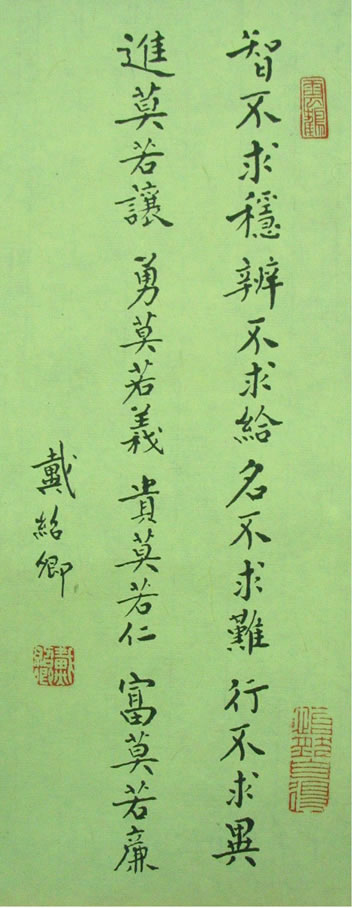 智不求穩辨不求給名不求難行不求異
進莫若讓勇莫若義貴莫若仁富莫若廉
戴紹卿